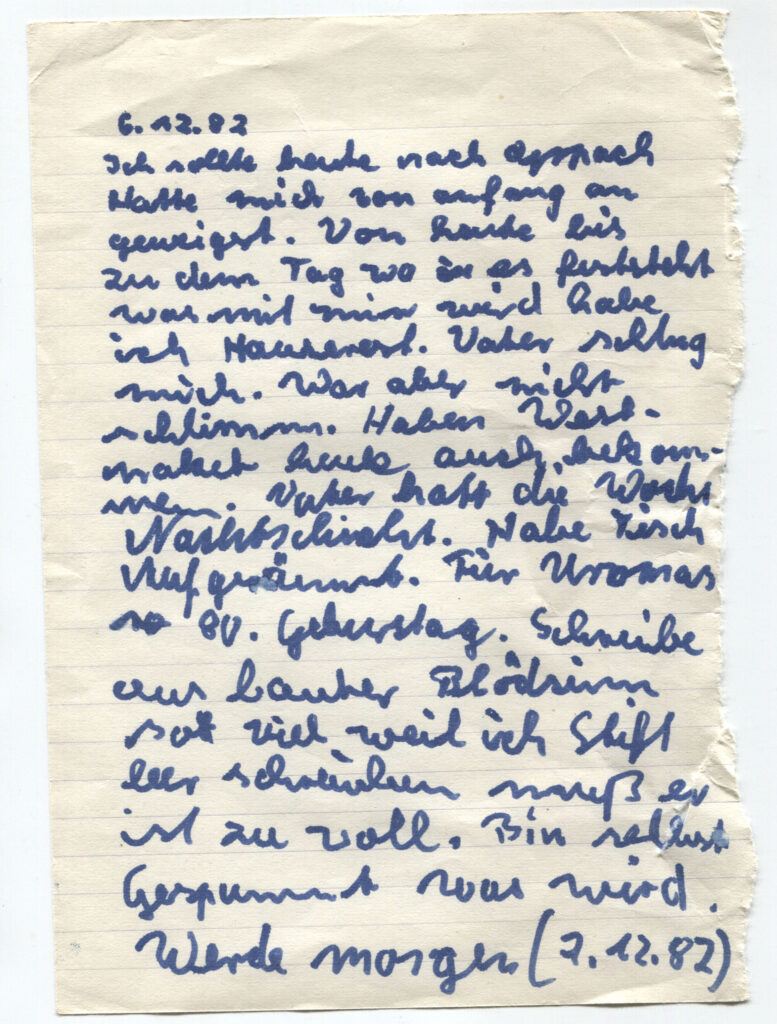 6.12.82
Ich sollte heute nach
Hatte mich von anfang an
geweigert. Von heute bis
zu dem Tag wo es feststeht
was mit mir wird habe
ich Hausarest. Vater schlug
mich. War aber nicht
schlimm. Haben West-
paket heute auch bekom-
men. Vater hatt die Woche
Nachtschicht. Habe Tisch
Aufgeräumt. Für Uromas
80. Geburstag. Schreibe
aus lauter Blödsinn
so viel weil ich Stift
leer schreiben muß er
ist zu voll. Bin selbst
Gespannt was wird.
Werde morgen (7.12.82)